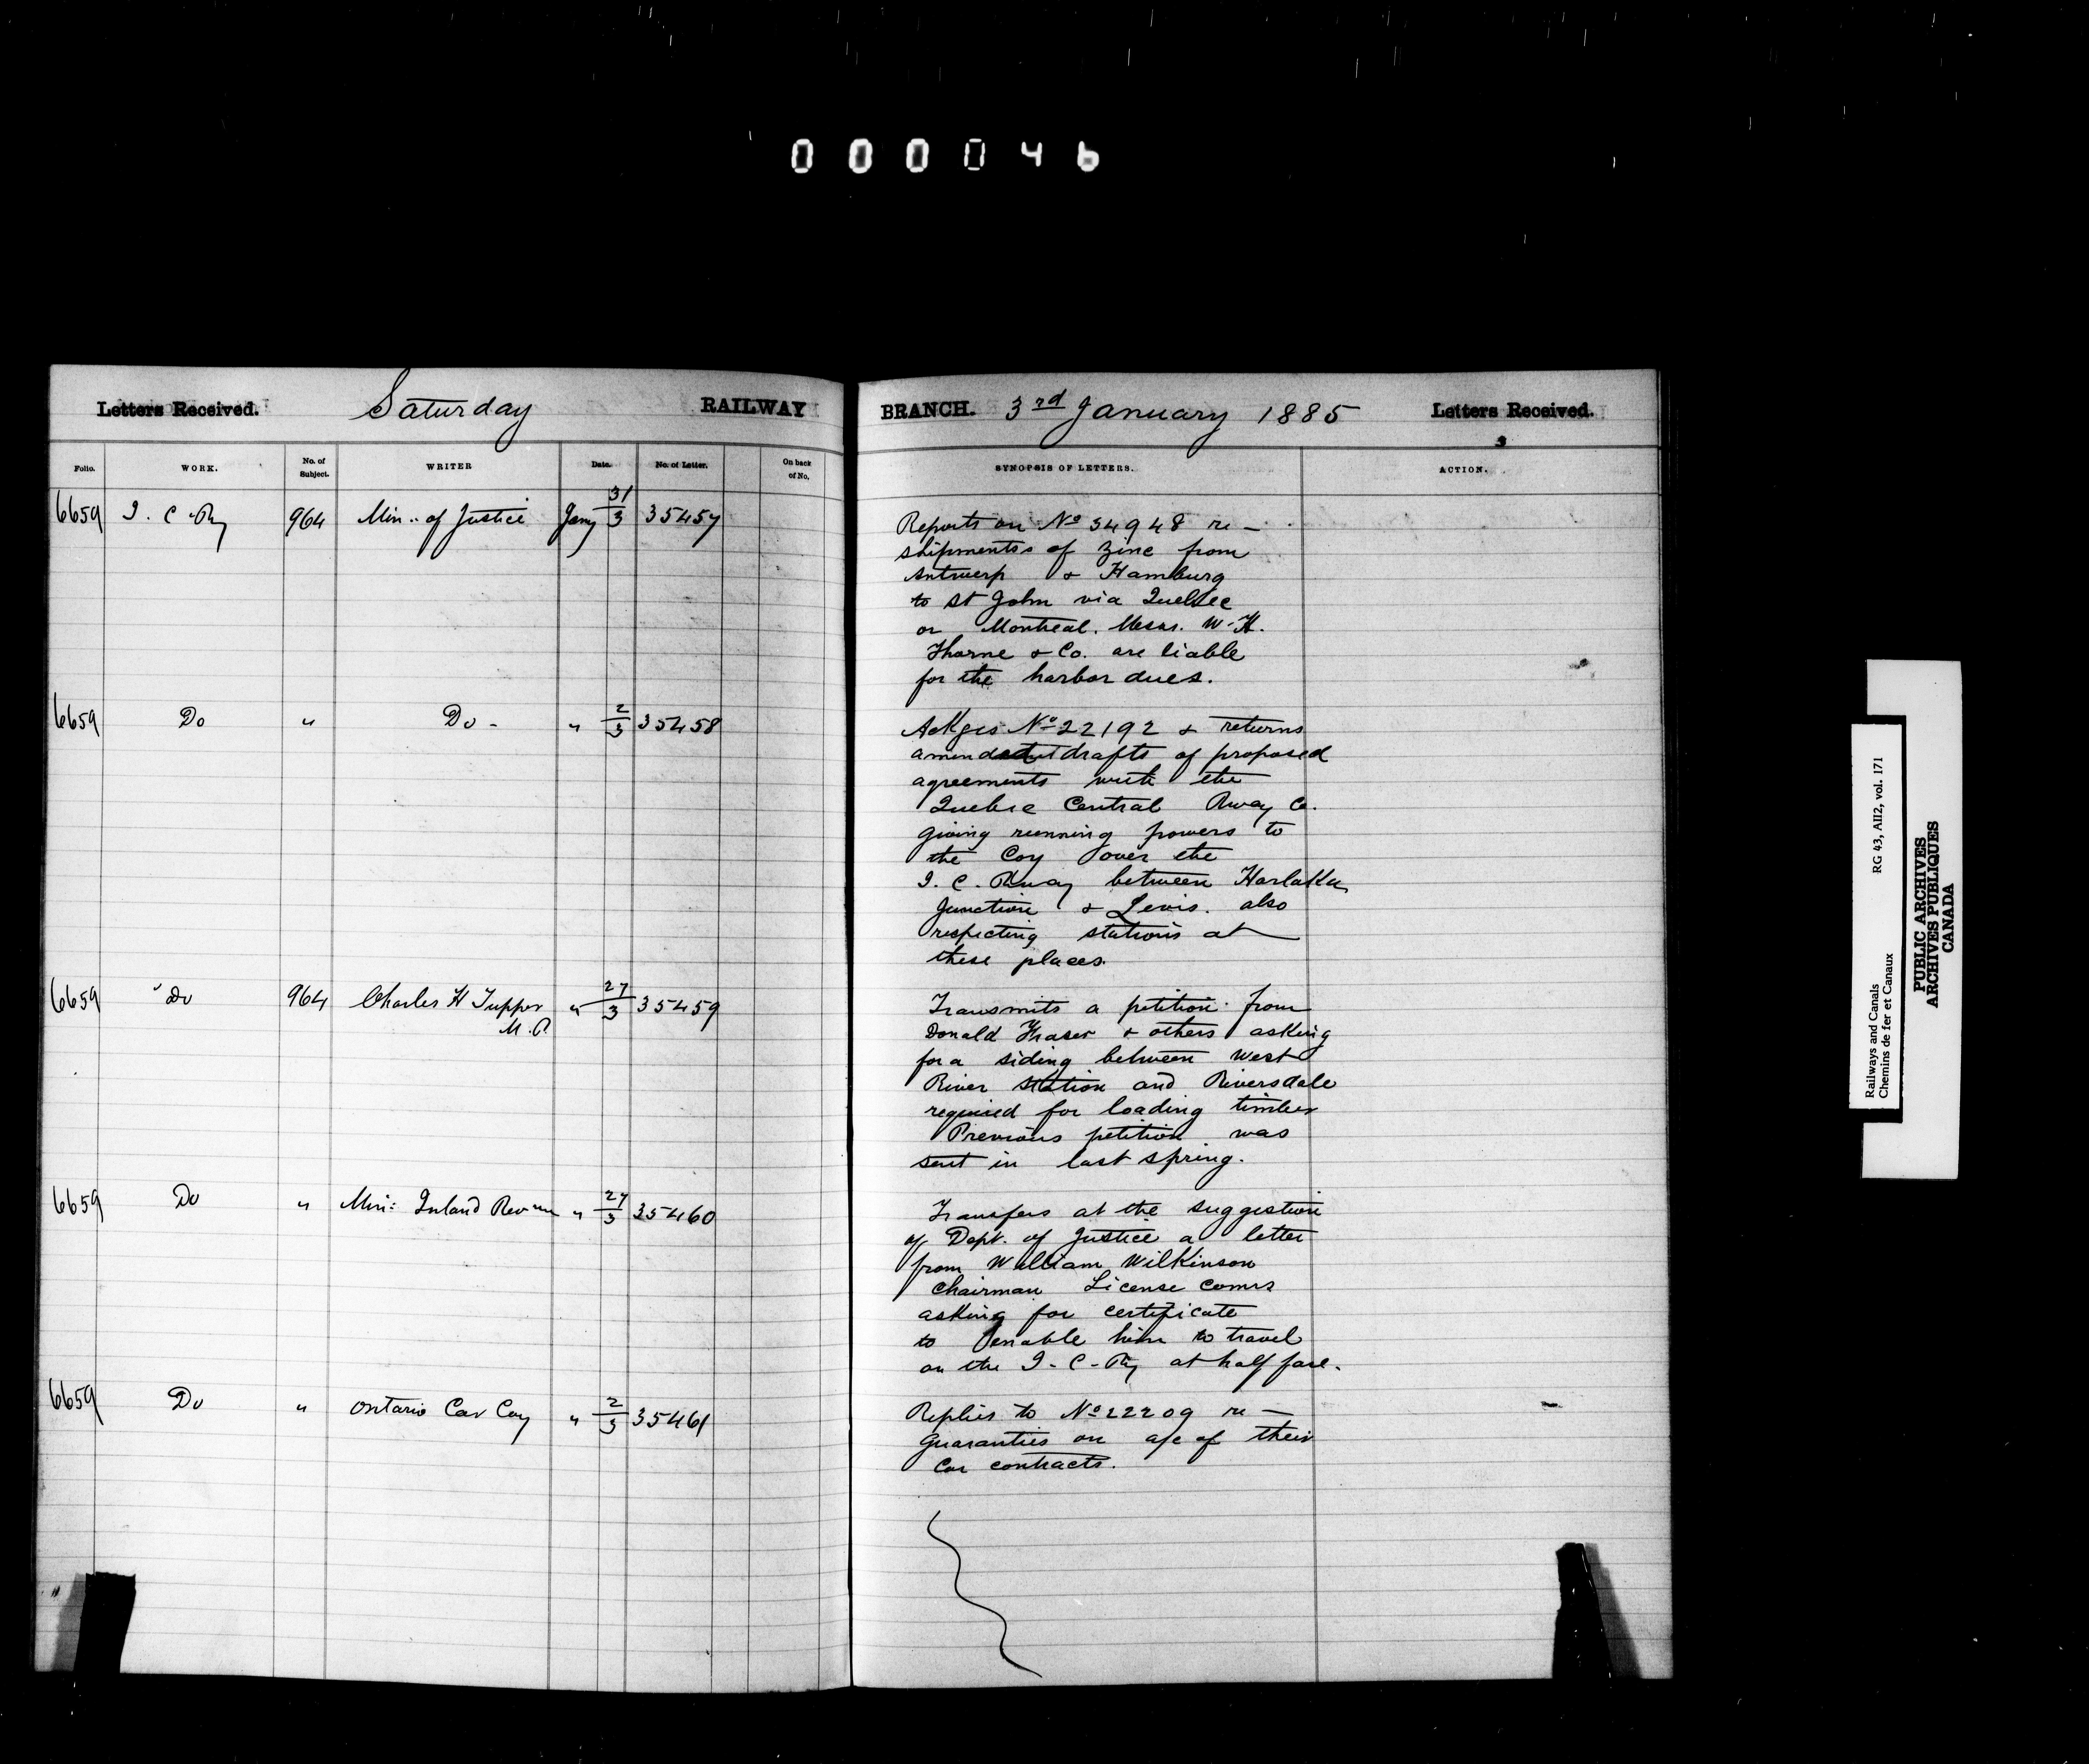 000046
Letters Received. Saturday RAILWAY
Folio. WORK. No. of Subject. WRITER Date. No. of Letter. On back of No.
6659 I. C. Ry 964 Min.. of Justice Jany 31/3 35457
6659 Do " Do - " 2/3 35458
6659 Do 964 Charles H Tupper " 27/3 35459
M.P.
6659 Do " Min: Inland Revenue " 27/3 35460
6659 Do " Ontario Car Coy " 2/3 35461
BRANCH. 3rd January 1885 Letters Received.
3
SYNOPSIS OF LETTERS. ACTION.
Reports on No 34948 re -
shipments of zinc from
Antwerp & Hamburg
to St John via Quebec
or Montreal. Messrs. W. H.
Thorne & Co. are liable
for the harbor dues.
Ackges No 22192 & returns
amended drafts of proposed
agreements with the
Quebec Central Rway Co.
giving running powers to
the Coy over the
I. C. Rway between Harlaka
Junction & Levis. also
respecting stations at
these places.
Transmits a petition from
Donald Fraser & others asking
for a siding between West
River Station and Riversdale
required for loading timber
Previous petition was
sent in last spring.
Transfers at the suggestion
of Dept. of Justice a letter
from William Wilkinson
Chairman License Comrs
asking for certificate
to enable him to travel
on the I. C. Ry at half fare.
Replies to No 22209 re -
Guaranties on a/c of their
Car contracts.
Railways and Canals RG 43, AII2, vol. 171
Chemins de fer et Canaux
PUBLIC ARCHIVES
ARCHIVES PUBLIQUES
CANADA